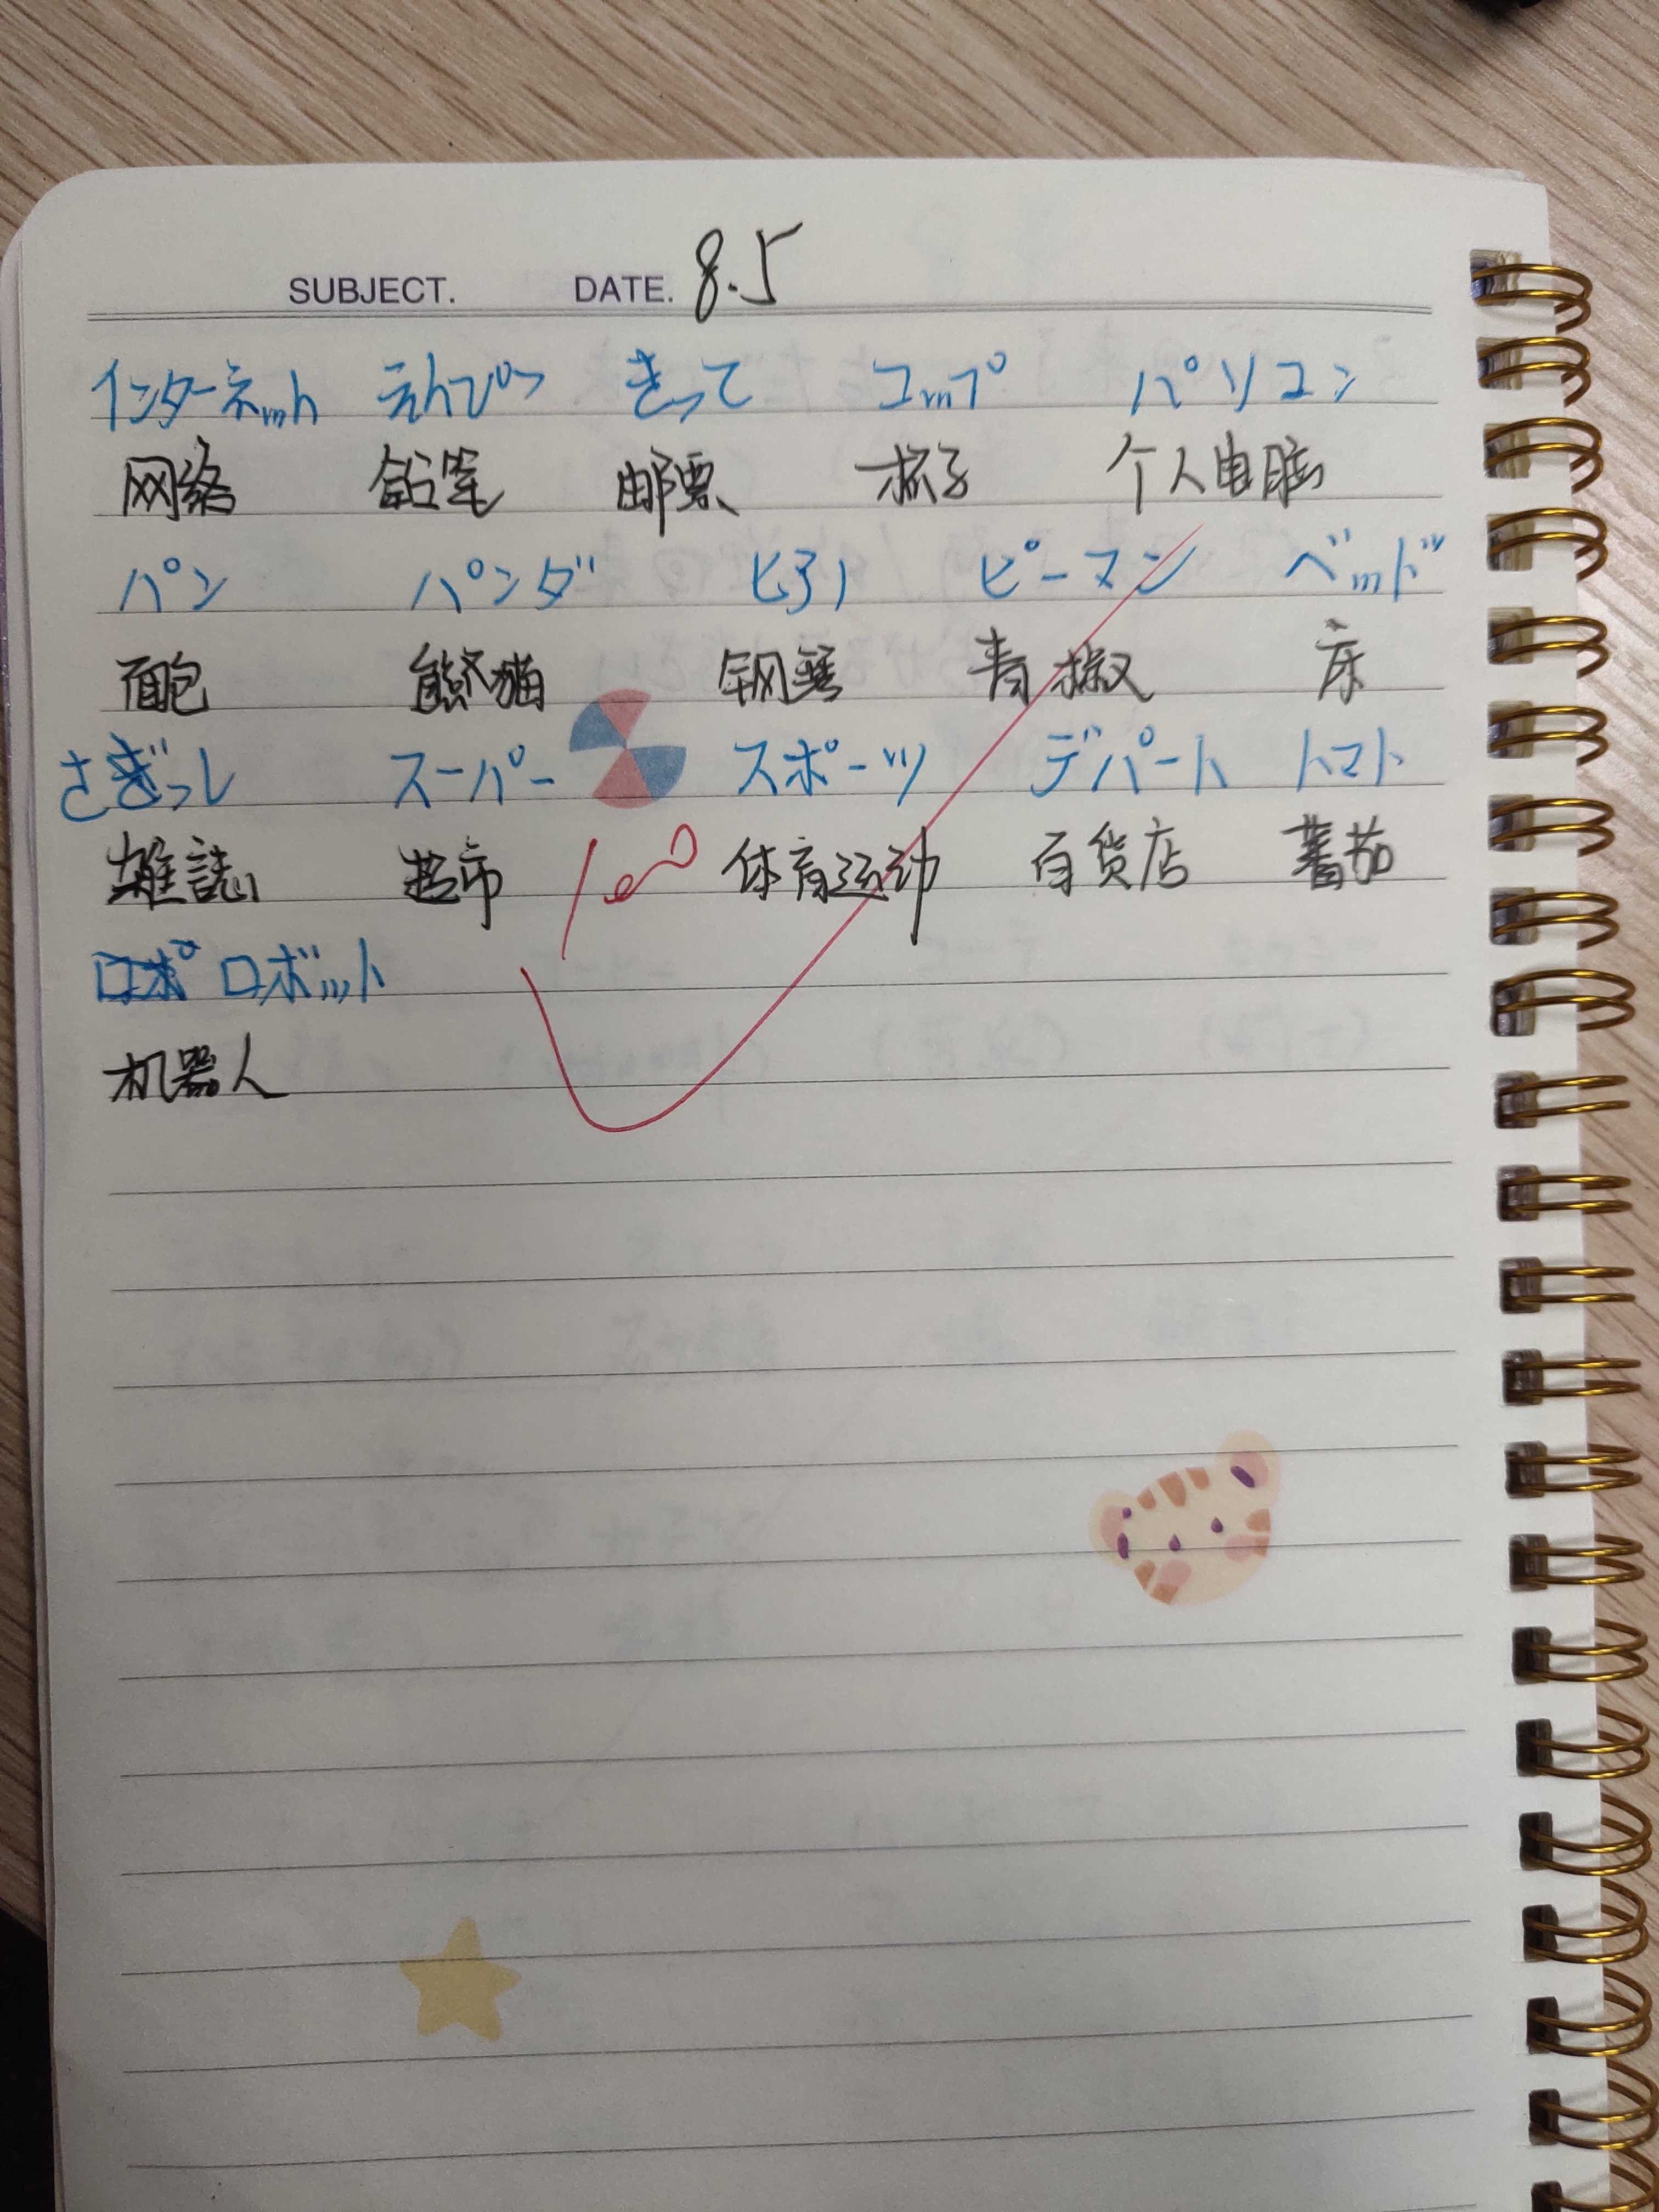 SUBJECT. DATE. 8.5
インターネット えんぴつ きって コップ パソコン
网络 铅笔 邮票 杯子 个人电脑
パン パンダ ピーマン ベッド
面包 熊猫 钢琴 青椒 床
スーパー スポーツ デパート トマト
雑誌 超市 100 体育运动 百货店 蕃茄
ロボット
机器人